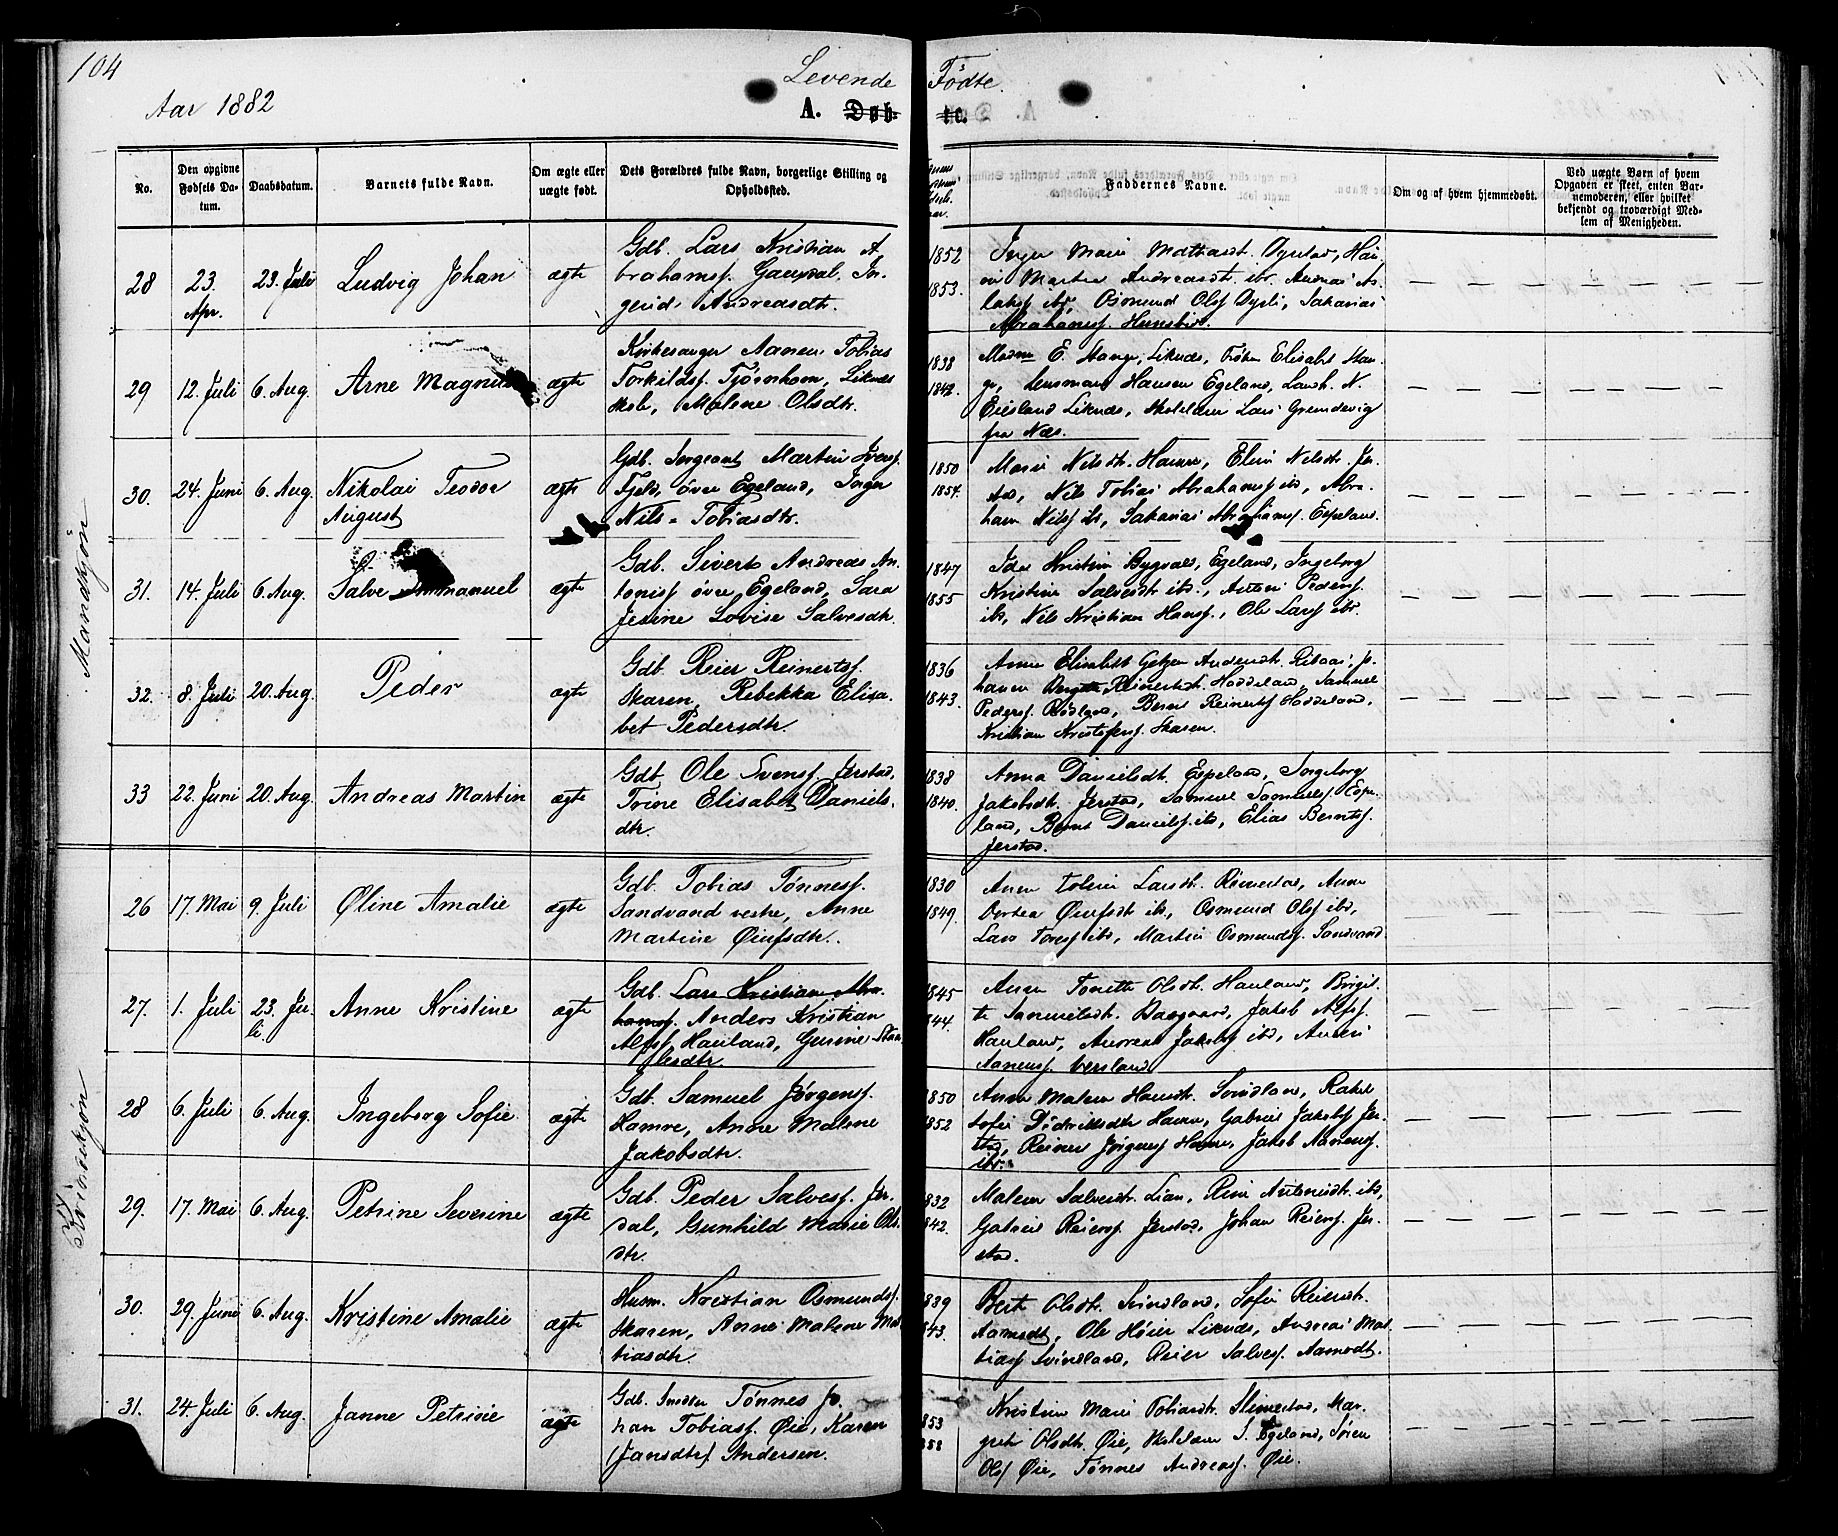 104
Levende Fødte.
Aar 1882
A. Døb te.
No.
Den opgivne Fødsels Datum.
Daabsdatum.
Barnets fulde Navn.
Om ægte eller uægte født.
Dets Forældres fulde Navn, borgerlige Stilling og Opholdssted.
Faddernes Navne.
Om og af hvem hjemmedøbt.
Ved uægte Børn af hvem
Opgaven er skeet, enten Bar-
nemoderen, eller hvilket
bekjendt og troværdigt Med-
lem af Menigheden.
Mandkjøn
28 23. Apr. 23. Juli Ludvig Johan ægte
Gdb. Lars Kristian A-
brahamsf. Gausdal, In-
gerid Andreasdtr.
1852
1853.
Inger Marie
Martea Andreasdt. ibr.
Osmund Olsf Dyrli, Sakarias
Abrahamsf.
29 12. Juli 6. Aug. Arne Magnus ægte
Kirkesanger Aanen Tobias
Torkildsf. Tjørnhom, Liknes
skole, Malene Olsdtr.
1838
1842.
E. Stange, Liknes, Frøken Elisabet Stan-
ge, Lensmand Hansen Egeland, Landh. N.
Eiesland Liknes, Skolelærer Lars
fra Næs.
30. 24. Juni 6. Aug. Nikolai Teodor
August ægte
Gdb. Sergeant Martin Iversf.
Fjeld, øvre Egeland, Inger
Nils-Tobiasdtr.
1850
1854.
Marie Nilsdtr. Hamre, Elen Nilsdtr. Jer-
stad, Nils Tobias Abrahamsf ibd, Abra-
ham Nilsf ib, Sakarias Abrahamsf. Espeland.
31. 14. Juli 6. Aug. Salve Emmanuel ægte
Gdb. Sivert Andreas An-
tonisf øvre Egeland, Sara
Jesine Lovise Salvesdtr.
1847
1855
Ida Kristine Bygvald, Egeland, Ingeborg
Kristine Salvesdt ib., Anton Pedersf.
ib, Nils Kristian Hansf., Ole Larsf ibr.
32. 8. Juli 20. Aug. Peder ægte
Gdb. Reier Reinertsf.
Skaren, Rebekka Elisa-
bet Pedersdtr.
1836
1843.
Anne Elisabet Andersdt. Risaas, Jo-
hanne Reinertsdt. Hoddeland, Samuel
Pedersf. Rødland, Bernt Reinertsf Hoddeland,
Kristian Kristofersf. Skaren.
33 22. Juni 20. Aug. Andreas Martin ægte
Gdb. Ole Svensf. Jerstad,
Trine Elisabet Daniels-
dtr.
1838
1840.
Anna Danielsdt. Espeland, Ingeborg
Jakobsdt. Jerstad, Samuel Samuelsf Espe-
land, Bernt Danielsf. ib, Elias Berntsf.
Jerstad.
Kvindekjøn
26 17. Mai 9. Juli Øline Amalie ægte
Gdb. Tobias Tønnesf.
Sandvand vestre, Anne
Martine Øiufsdtr.
1830
1849.
Anne Larsdt. Rimestad, Anne
Dortea Øiufsdt ib, Osmund Olsf ibd,
Lars Toresf ibd, Martin Osmundsf. Sandvand
27. 1. Juli 23. Ju-
li. Anne Kristine ægte
Gdb. Lars Kristian Abra-
hamsf. Anders Kristian
Alfsf, Hauland, Gurine
Olsdtr.
1845
1844.
Anne Tonette Olsdt. Hauland, Birgit-
te Samuelsdt. Jakob Alfsf.
Hauland, Andreas Jakobsf ibd,
Aanensf. Versland
28 6. Juli 6. Aug. Ingeborg Sofie ægte
Gdb. Samuel Jørgensf.
Hamre, Anne Malene
Jakobsdtr.
1850
1852
Anne Malene Hansdt. Svindland, Rakel
Sofie Didriksdtr Hamre, Gabriel Jakobsf Jer-
stad, Reinert Jørgensf Hamre, Jakob Aanensf.
ibr.
29. 17. Mai 6. Aug. Petrine Severine ægte
Gdb. Peder Salvesf. Jer-
dal, Gunhild Marie Ols-
dtr.
1832
1842.
Malene Salvesdt. Lian, Antonisdt. ibd,
Gabriel Reiersf. Jerstad, Johan Reiersf. Jer-
stad.
30. 29. Juni 6. Aug. Kristine Amalie ægte
Husm. Kristian Osmundsf.
Skaren, Anne Malene Mat-
tiasdtr.
1839
1843.
Berte Olsdt. Svindland, Sofie Reiersdt.
Aamodt, Ole Høier Liknes, Andreas Mat-
tiasf Svindland, Reier Salvesf. Aamodt.
31. 24. Juli 6. Aug. Janne Petrine ægte
Gdb. Smeden Tønnes Jo-
han Tobiasf. Øie, Karen
(Jansdtr) Andersen.
1853
1858
Kristine Marie Tobiasdt. Slimestad, Mar-
grete Olsdt. Øie, Skolelærer S. Egeland, Søren
Olsf Øie, Tønnes Andreasf. Øie.